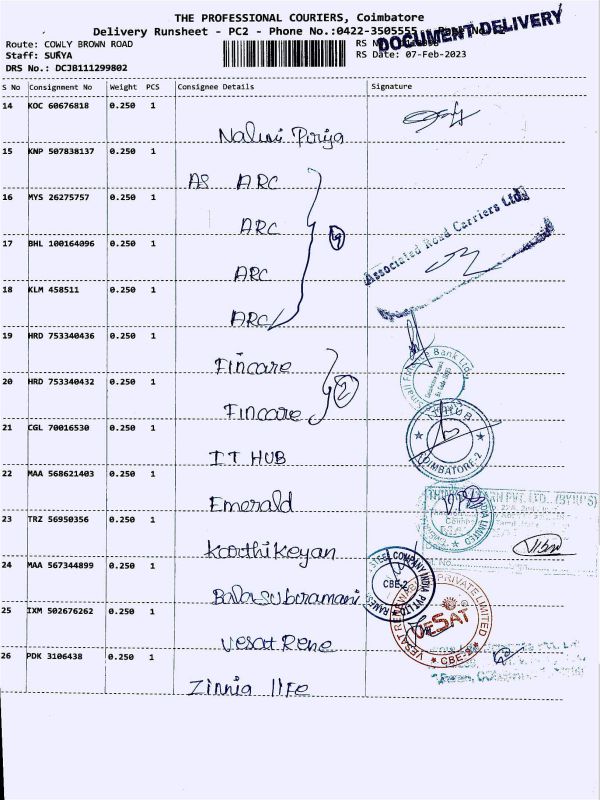 THE PROFESSIONAL COURIERS, Coimbatore
Delivery Runsheet - PC2 - Phone No.:0422-3505555
DOCUMENT DELIVERY
Route: COWLY BROWN ROAD
RS N
Staff: SURYA
RS Date: 07-Feb-2023
DRS No.: DCJB111299802
S No Consignment No Weight PCS Consignee Details Signature
14 KOC 60676818 0.250 1
Nalini Piriya
15 KNP 507838137 0.250 1
AS ARC
16 MYS 26275757 0.250 1
ARC
17 BHL 100164096 0.250 1
ARC
18 KLM 458511 0.250 1
ARC
Associated Road Carriers Ltd.
19 HRD 753340436 0.250 1
Fincare
Small Finance Bank Ltd
20 HRD 753340432 0.250 1
Fincare
2
21 CGL 70016530 0.250 1
IT HUB
IT HUB
COIMBATORE-2
22 MAA 568621403 0.250 1
Emerald
23 TRZ 56950356 0.250 1
Karthikeyan
24 MAA 567344899 0.250 1
Balasubramani
STEEL COMPANY INDIA PVT LTD
CBE-2
25 IXM 502676262 0.250 1
Vesat Rene
VESAT RENEWABLE PRIVATE LIMITED
VESAT
CBE-2
26 PDK 3106438 0.250 1
Zinnia life